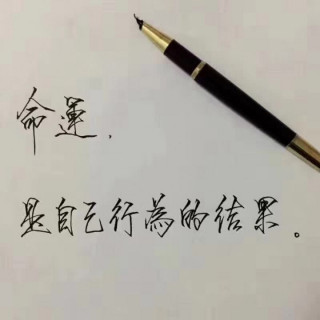 命運，
是自己行為的结果。